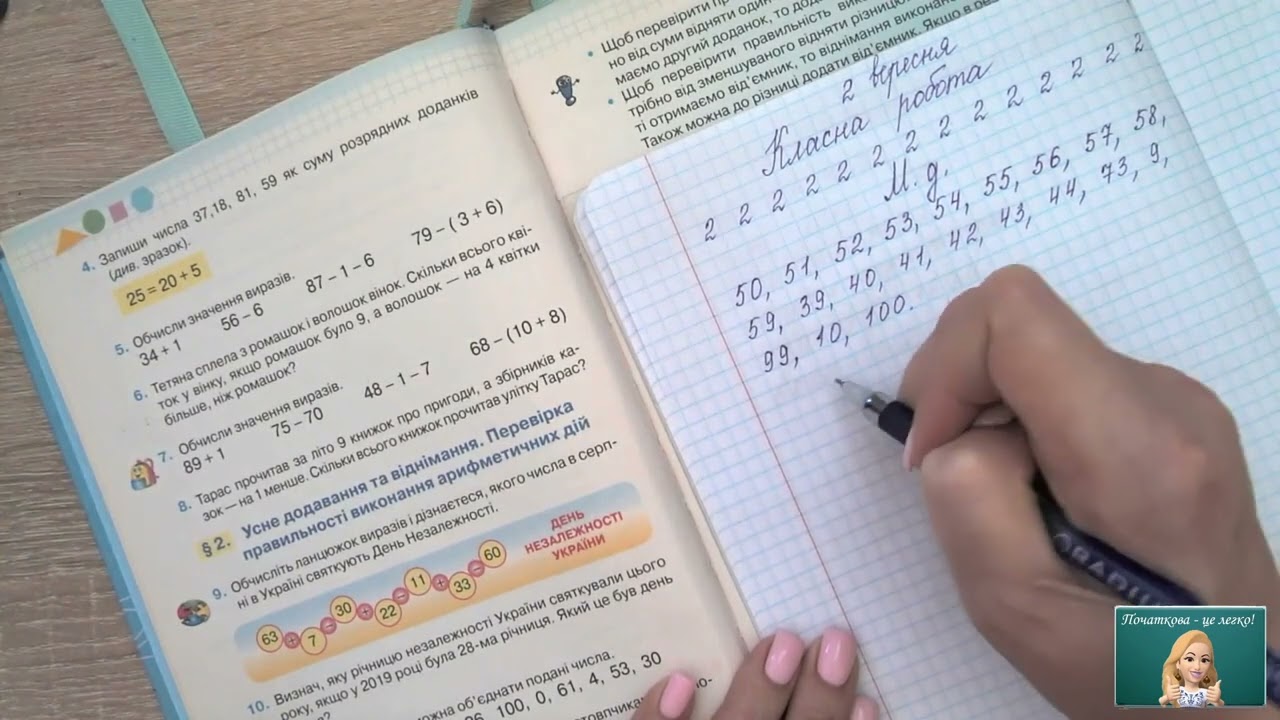 4. Запиши числа 37,18, 81, 59 як суму розрядних доданків
(див. зразок).
25 = 20 + 5
5. Обчисли значення виразів.
34 + 1 56 – 6 87 – 1 – 6 79 – ( 3 + 6)
6. Тетяна сплела з ромашок і волошок вінок. Скільки всього кві-
ток у вінку, якщо ромашок було 9, а волошок — на 4 квітки
більше, ніж ромашок?
7. Обчисли значення виразів.
89 + 1 75 – 70 48 – 1 – 7 68 – (10 + 8)
8. Тарас прочитав за літо 9 книжок про пригоди, а збірників ка-
зок — на 1 менше. Скільки всього книжок прочитав улітку Тарас?
§ 2. Усне додавання та віднімання. Перевірка
правильності виконання арифметичних дій
9. Обчисліть ланцюжок виразів і дізнаєтеся, якого числа в серп-
ні в Україні святкують День Незалежності.
63 + 7 – 30 + 22 – 11 + 33 – 60
ДЕНЬ
НЕЗАЛЕЖНОСТІ
УКРАЇНИ
10. Визнач, яку річницю незалежності України святкували цього
року, якщо у 2019 році була 28-ма річниця. Який це був день
можна об'єднати подані числа.
100, 0, 61, 4, 53, 30
• Щоб перевірити
но від суми відняти один
маємо другий доданок, то
• Щоб перевірити правильність
трібно від зменшуваного відняти різницю
ті отримаємо від'ємник, то віднімання виконано
Також можна до різниці додати від'ємник. Якщо в
2 вересня
Класна робота
2 2 2 2 2 2 2 2 2 2 2 2 2 2
М. д.
50, 51, 52, 53, 54, 55, 56, 57, 58,
59, 39, 40, 41, 42, 43, 44, 73, 9,
99, 10, 100.
Початкова - це легко!